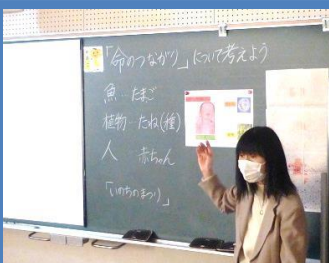 「命のつながり」について考えよう
魚…たまご
植物…たね(種)
人　赤ちゃん
「いのちのまつり」